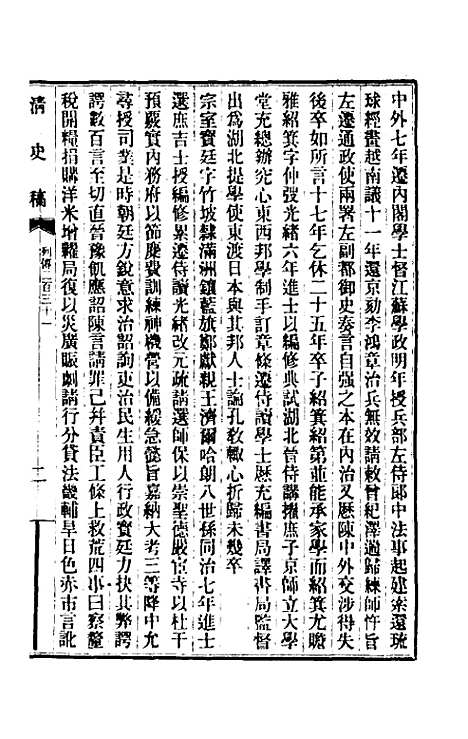 中外七年遷內閣學士督江蘇學政明年授兵部左侍郎中法事起建索還琉
球經畫越南議十一年還京劾李鴻章治兵無效請敕曾紀澤遄歸練師忤旨
左遷通政使兩署左副都御史奏言自强之本在內治又歷陳中外交涉得失
後卒如所言十七年乞休二十五年卒子紹箕紹第並能承家學而紹箕尤贍
雅紹箕字仲弢光緒六年進士以編修典試湖北晉侍講擢庶子京師立大學
堂充總辦究心東西邦學制手訂章條遷侍讀學士歷充編書局譯書局監督
出爲湖北提學使東渡日本與其邦人士論孔敎輒心折歸未幾卒
宗室寶廷字竹坡隸滿洲鑲藍旗鄭獻親王濟爾哈朗八世孫同治七年進士
選庶吉士授編修累遷侍讀光緒改元疏請選師保以崇聖德嚴宦寺以杜干
預覈實內務府以節糜費訓練神機營以備緩急懿旨嘉納大考三等降中允
尋授司業是時朝廷方銳意求治詔詢吏治民生用人行政寶廷力抉其弊諤
諤數百言至切直晉豫飢應詔陳言請罪己幷責臣工條上救荒四事曰察釐
稅開糧捐購洋米增糶局復以災廣賑劇請行分貸法畿輔旱日色赤市言訛
清史稿
列傳二百三十一
二